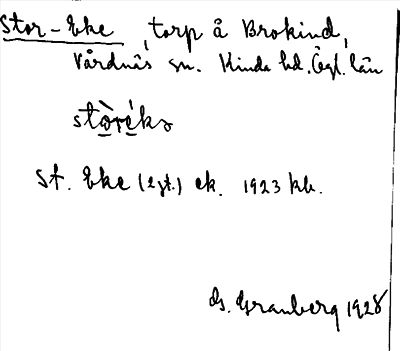 Stor-Eke, torp å Brokind,
Vårdnäs sn. Kinda hd. Ögl. län
stòrékə
St. Eke (lgt.) ek. 1923 kb.
G. Granberg 1928